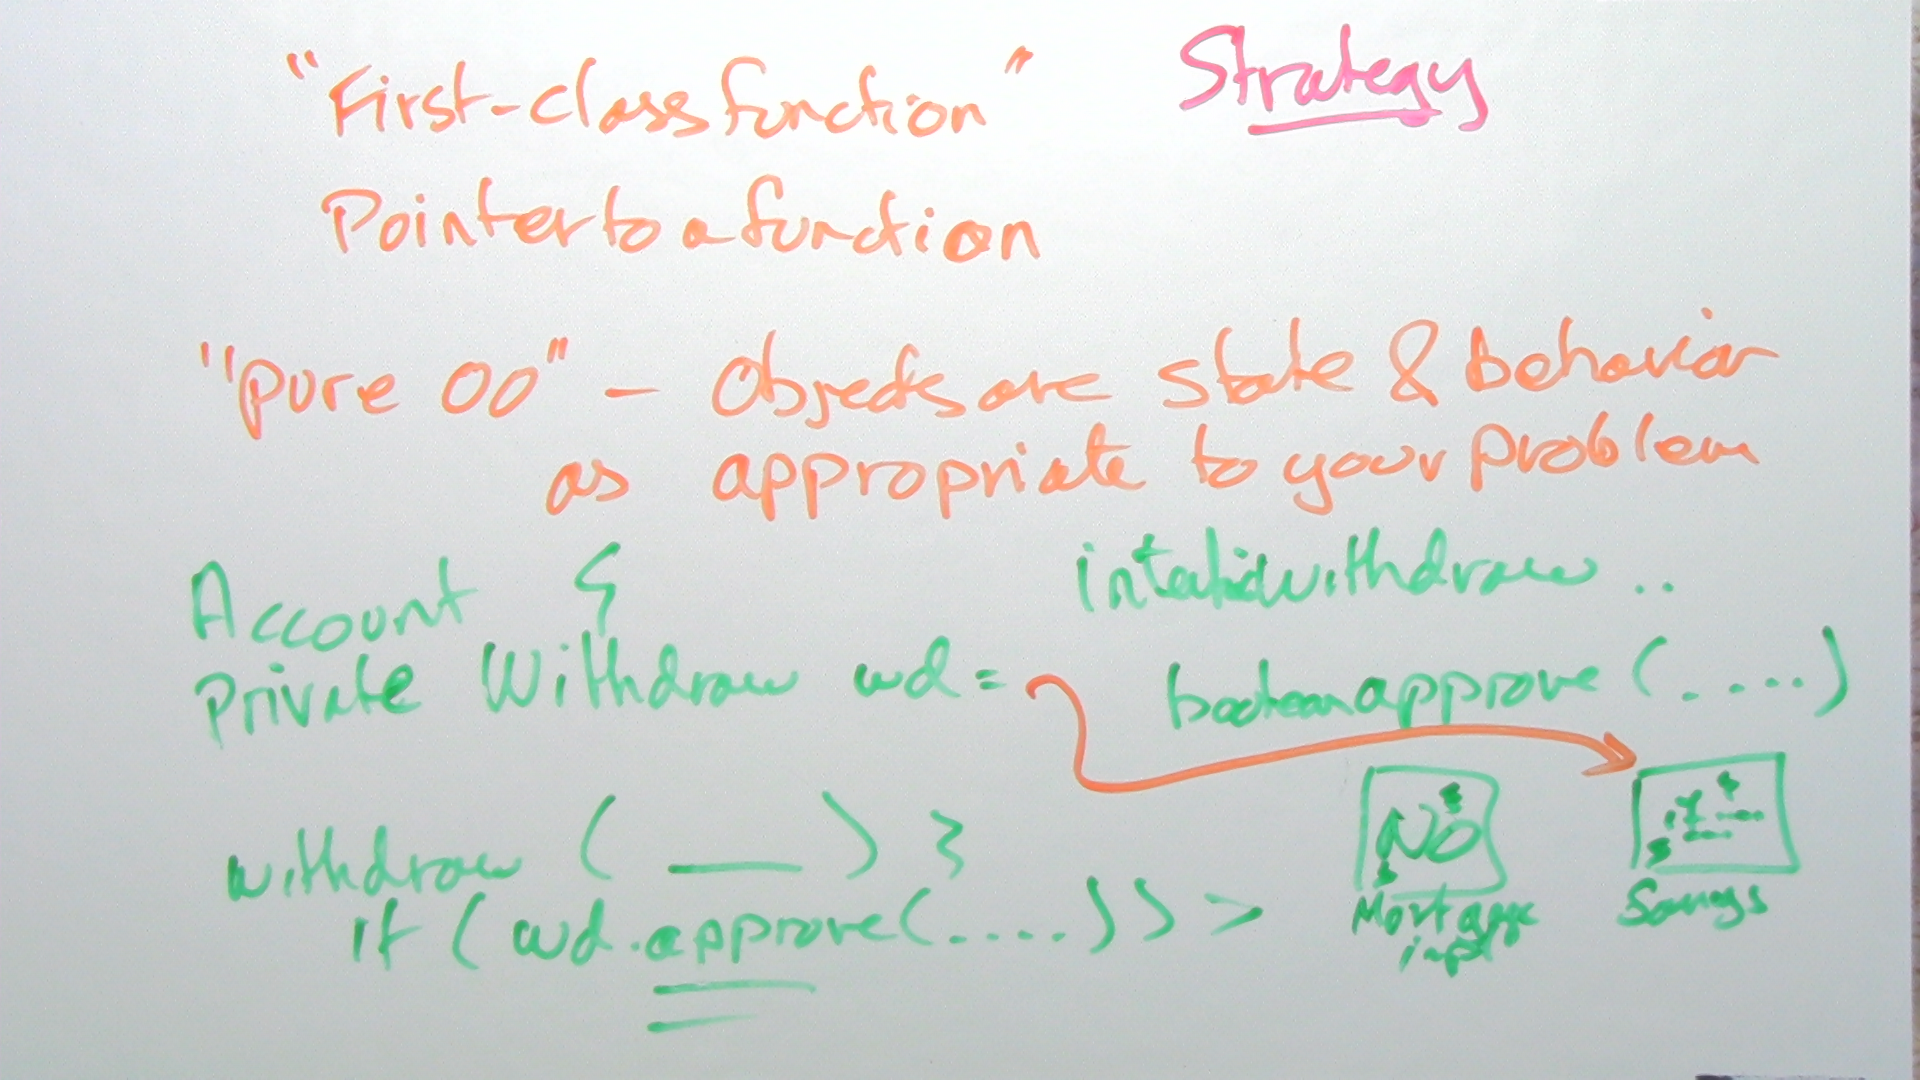 "First-class function"
Strategy
Pointer to a function
"pure OO" – Objects are state & behavior
as appropriate to your problem
Account {
withdraw ..
private Withdraw wd =
boolean approve (.....)
withdraw ( ___ ) {
if (wd.approve(.....)) >
NO
if
Mortgage
Savings